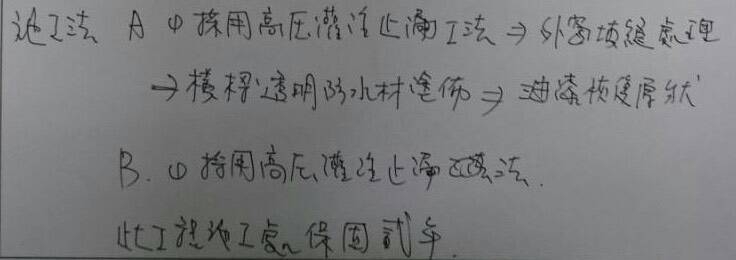 施工法 A ① 採用高压灌注止漏工法 → 外窗填縫處理
→ 樓梯透明防水材塗佈 → 油漆恢復原狀
B. ① 採用高压灌注止漏工法.
此工程施工處保固貳年.